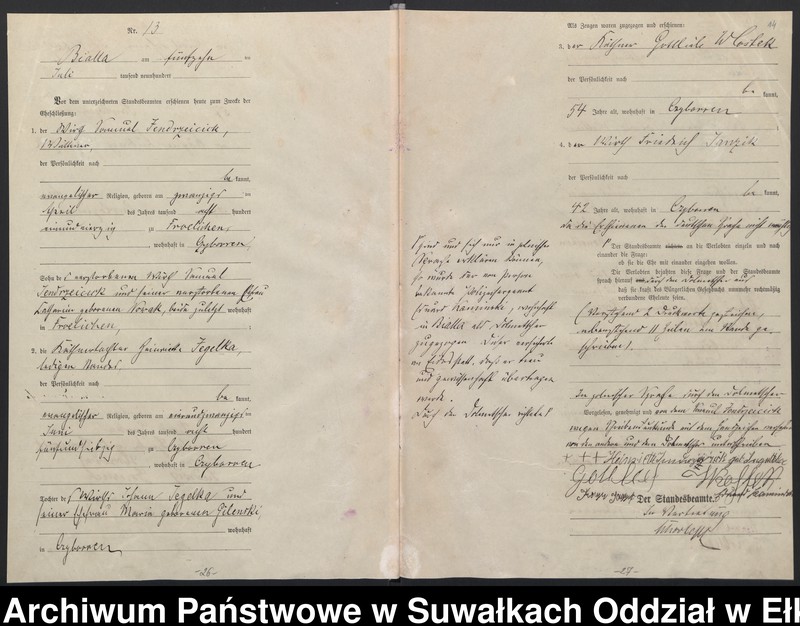 Nr. 13
Bialla am fünfzehn ten
Juli tausend neunhundert
Vor dem unterzeichneten Standesbeamten erschienen heute zum Zwecke der
Eheschließung:
1. der Wirth Samuel Jendrzeizick,
Wittwer,
der Persönlichkeit nach
be kannt,
evangelischer Religion, geboren am zwanzigsten
April des Jahres tausend acht hundert
einundvierzig zu Froelichen,
, wohnhaft in Czyborren,
Sohn des verstorbenen Wirth Samuel
Jendrzeizick und seiner verstorbenen Ehefrau
Catharina geborenen Nowak, beide zuletzt wohnhaft
in Froelichen,
2. die Käthnertochter Heinriette Jegelka,
ledigen Standes.
der Persönlichkeit nach
be kannt,
evangelischer Religion, geboren am einundzwanzigsten
Juni des Jahres tausend acht hundert
fünfundsiebzig zu Czyborren
, wohnhaft in Czyborren
Tochter des Wirths Johann Jegelka und
seiner Ehefrau Maria geborenen Zilenski,
wohnhaft
in Czyborren
-26-
und sich nur in polnischer
Sprache erklären können,
so wurde der von Person
bekannte
Eduard Kaminski, wohnhaft
in Bialla als Dolmetscher
zugezogen. Dieser versicherte
an Eidesstatt, daß er treu
und gewissenhaft übertragen
werde.
Durch den Dolmetscher richtete
14
Als Zeugen waren zugezogen und erschienen:
3. der Käthner Gottlieb Wlostek
der Persönlichkeit nach
be kannt,
54 Jahre alt, wohnhaft in Czyborren
4. der Wirth Friedrich
der Persönlichkeit nach
be kannt,
42 Jahre alt, wohnhaft in Czyborren
da die Erschienenen der deutschen Sprache nicht mächtig
Der Standesbeamte an die Verlobten einzeln und nach
einander die Frage:
ob sie die Ehe mit einander eingehen wollen.
Die Verlobten bejahten diese Frage und der Standesbeamte
sprach hierauf durch den Dolmetscher aus
daß sie kraft des Bürgerlichen Gesetzbuchs nunmehr rechtmäßig
verbundene Eheleute seien.
(Vorstehend 2 Druckworte gestrichen,
nebenstehend 11 Zeilen am Rande ge-
schrieben).
In polnischer Sprache durch den Dolmetscher
Vorgelesen, genehmigt und von dem Samuel Jendrzeizick
wegen Schreibensunkunde mit dem Handzeichen versehen
von den andern und dem Dolmetscher unterschrieben
+ + +
Gottlieb Wlostek
Der Standesbeamte.
Eduard Kaminski
In Vertretung
-27-
Archiwum Państwowe w Suwałkach Oddział w Ełk